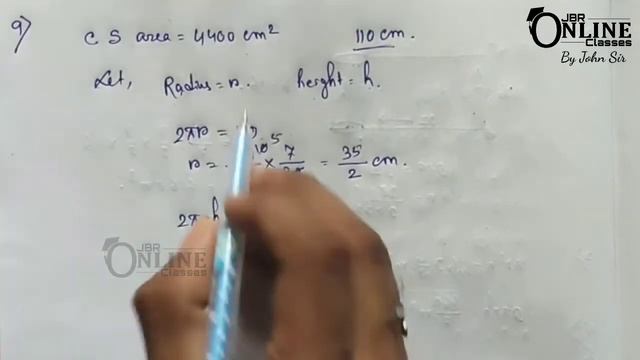 9) C S area = 4400 cm² 110 cm.
Let, Radius = r. height = h.
2πr =
r = × 7 = 35/2 cm.
2π h
JBR
ONLINE
Classes
By John Sir
JBR
ONLINE
Classes